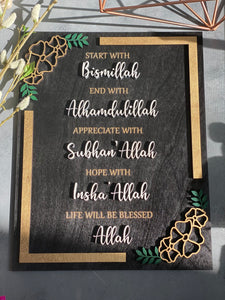 START WITH
Bismillah
END WITH
Alhamdulillah
APPRECIATE WITH
Subhan'Allah
HOPE WITH
Insha'Allah
LIFE WILL BE BLESSED
Allah